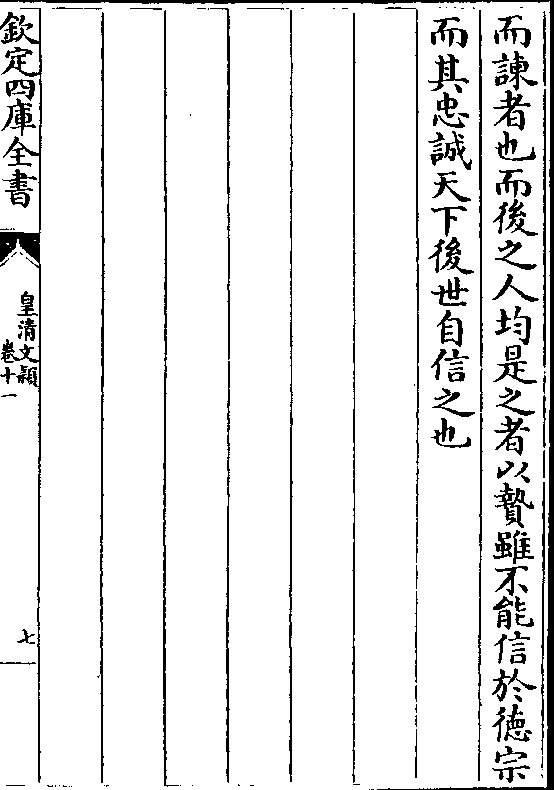 而諫者也而後之人均是之者以贄雖不能信於德宗
而其忠誠天下後世自信之也
欽定四庫全書
皇清文穎
卷十一
七